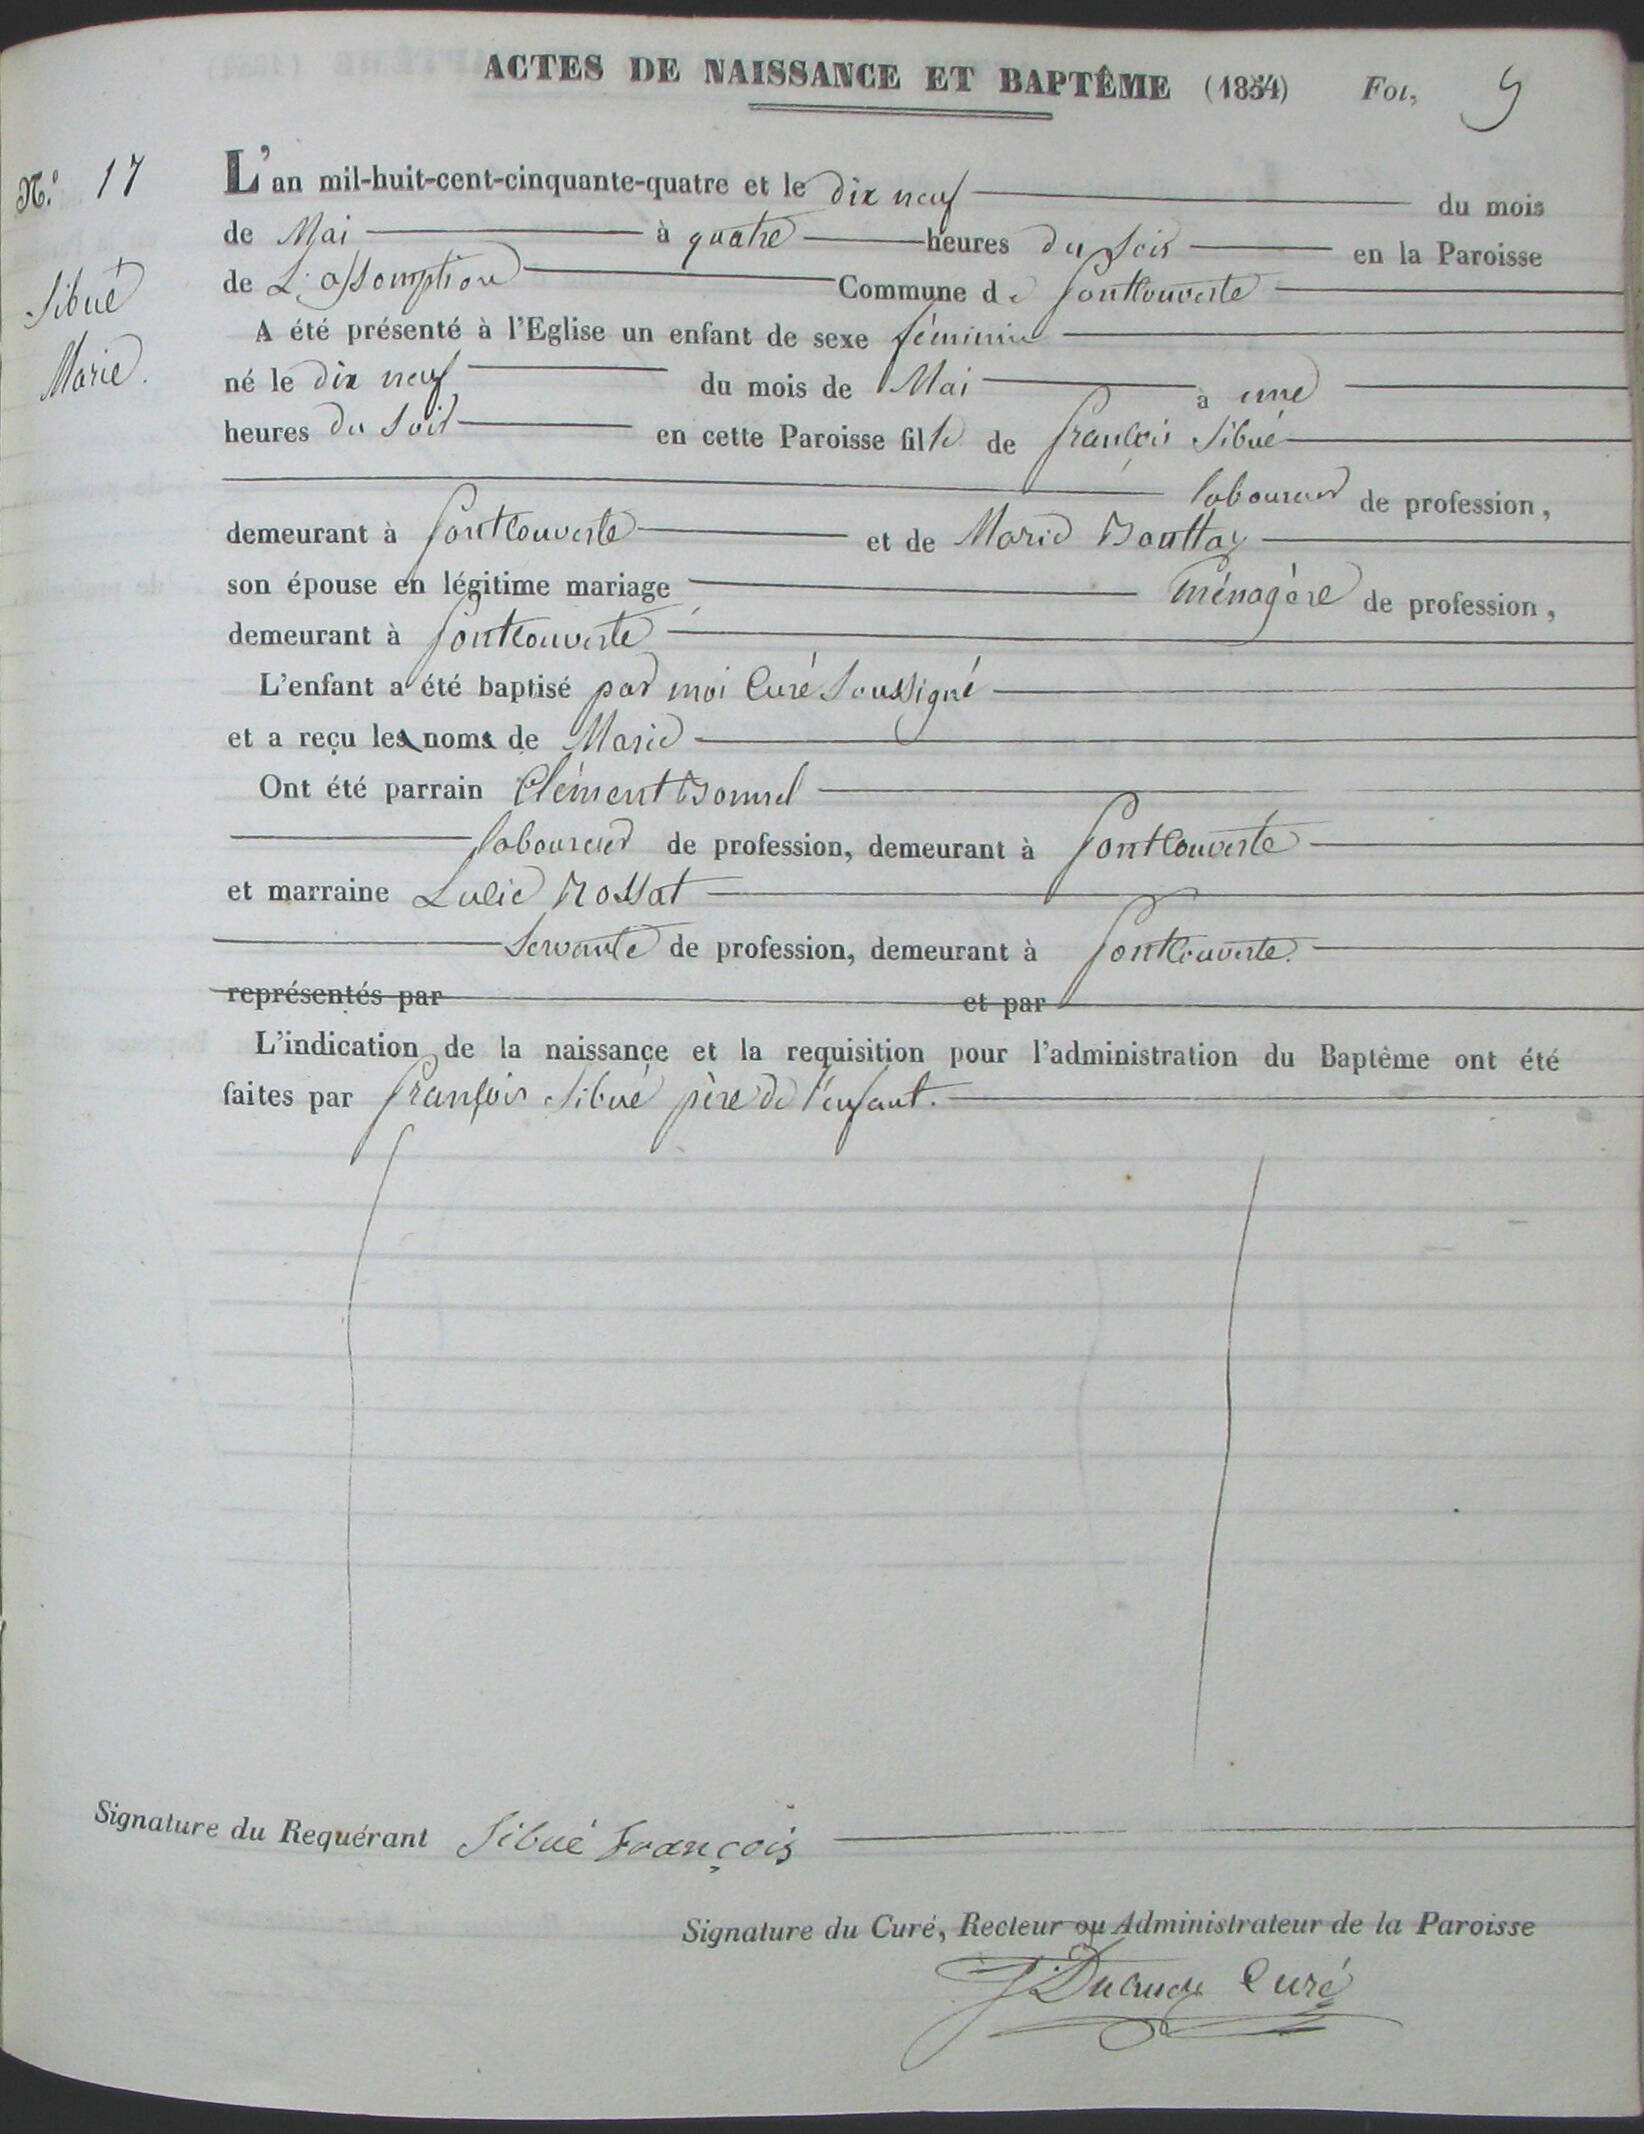 ACTES DE NAISSANCE ET BAPTÊME (1854) Fol, 9
N.° 17
Sibué
Marie.
L'an mil-huit-cent-cinquante-quatre et le dix neuf du mois
de Mai à quatre heures du soir en la Paroisse
de L'assomption Commune de Fontcouverte
A été présenté à l'Eglise un enfant de sexe féminin
né le dix neuf du mois de Mai à une
heures du soir en cette Paroisse fille de François Sibué
laboureur de profession,
demeurant à Fontcouverte et de Marie Bouttaz
son épouse en légitime mariage ménagère de profession,
demeurant à Fontcouverte
L'enfant a été baptisé par moi Curé Soussigné
et a reçu les noms de Marie
Ont été parrain Clément Bonnel
laboureur de profession, demeurant à Fontcouverte
et marraine Lucie Rossat
Servante de profession, demeurant à Fontcouverte.
représentés par et par
L'indication de la naissance et la requisition pour l'administration du Baptême ont été
faites par François Sibué père de l'enfant.
Signature du Requérant Sibué François
Signature du Curé, Recteur ou Administrateur de la Paroisse
Curé